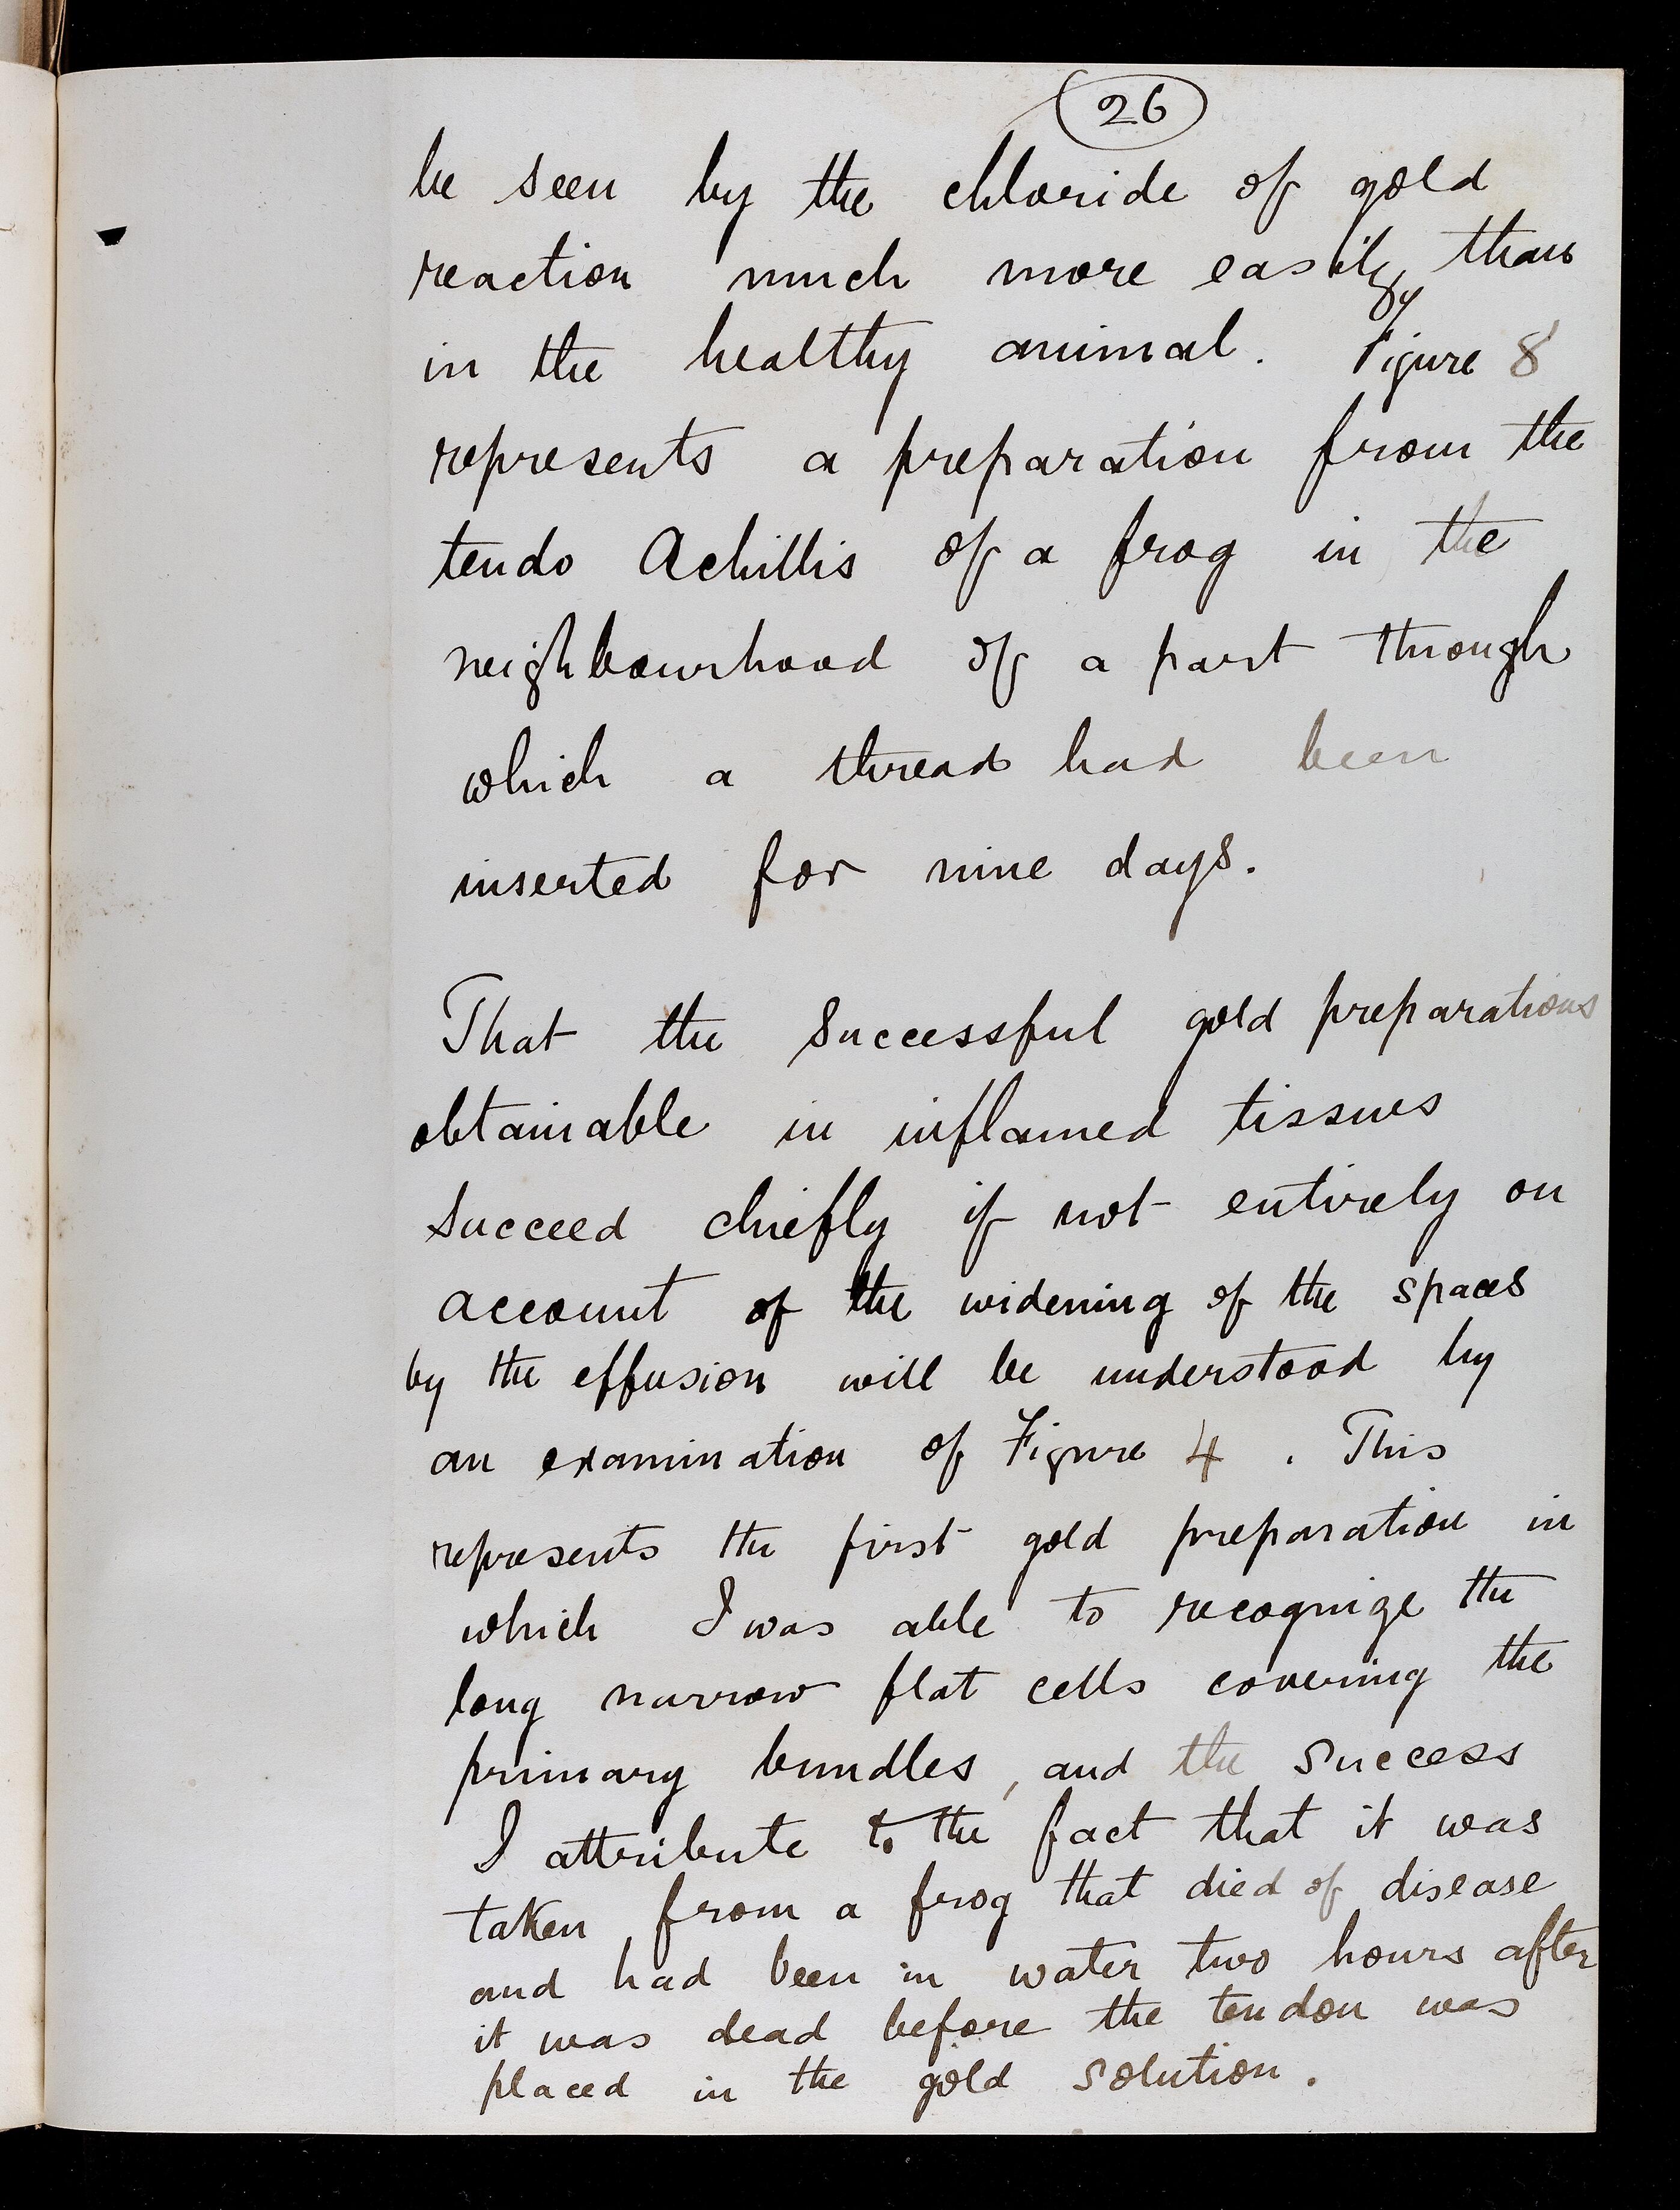 26
be seen by the chloride of gold
reaction much more easily than
in the healthy animal. Figure 8
represents a preparation from the
tendo Achillis of a frog in the
neighbourhood of a part through
which a thread had been
inserted for nine days.
That the successful gold preparations
obtainable in inflamed tissues
succeed chiefly if not entirely on
account of the widening of the spaces
by the effusion will be understood by
an examination of Figure 4. This
represents the first gold preparation in
which I was able to recognize the
long narrow flat cells covering the
primary bundles, and the success
I attribute to the fact that it was
taken from a frog that died of disease
and had been in water two hours after
it was dead before the tendon was
placed in the gold solution.